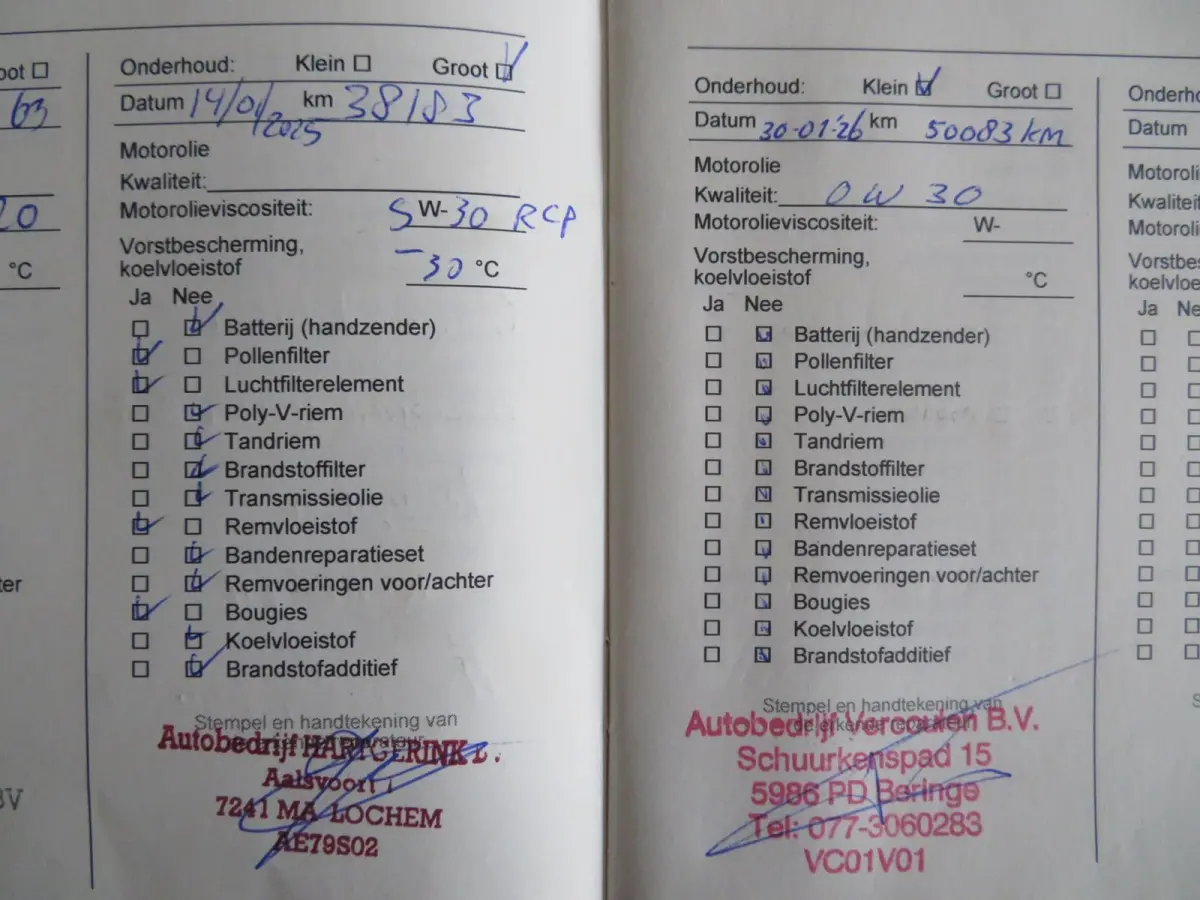 oot ☐
63
20
°C
ter
BV
Onderhoud: Klein ☐ Groot ☑
Datum 14/01/2025 km 38183
Motorolie
Kwaliteit:
Motorolieviscositeit: 5 W-30 RCP
Vorstbescherming,
koelvloeistof -30 °C
Ja Nee
☐ ☑ Batterij (handzender)
☑ ☐ Pollenfilter
☑ ☐ Luchtfilterelement
☐ ☑ Poly-V-riem
☐ ☑ Tandriem
☐ ☑ Brandstoffilter
☐ ☑ Transmissieolie
☑ ☐ Remvloeistof
☐ ☑ Bandenreparatieset
☐ ☑ Remvoeringen voor/achter
☑ ☐ Bougies
☐ ☑ Koelvloeistof
☐ ☑ Brandstofadditief
Stempel en handtekening van
Autobedrijf HARTGERINK
Aalsvoort
7241 MA LOCHEM
AE79S02
Onderhoud: Klein ☑ Groot ☐
Datum 30-01-'26 km 50083 KM
Motorolie
Kwaliteit: 0W 30
Motorolieviscositeit: W-
Vorstbescherming,
koelvloeistof °C
Ja Nee
☐ ☑ Batterij (handzender)
☐ ☑ Pollenfilter
☐ ☑ Luchtfilterelement
☐ ☑ Poly-V-riem
☐ ☑ Tandriem
☐ ☑ Brandstoffilter
☐ ☑ Transmissieolie
☐ ☑ Remvloeistof
☐ ☑ Bandenreparatieset
☐ ☑ Remvoeringen voor/achter
☐ ☑ Bougies
☐ ☑ Koelvloeistof
☐ ☑ Brandstofadditief
Stempel en handtekening van
de erkende reparateur
Autobedrijf Vercoulen B.V.
Schuurkenspad 15
5986 PD Beringe
Tel: 077-3060283
VC01V01
Onderho
Datum
Motoroli
Kwaliteit
Motoroli
Vorstbes
koelvloe
Ja Ne
S